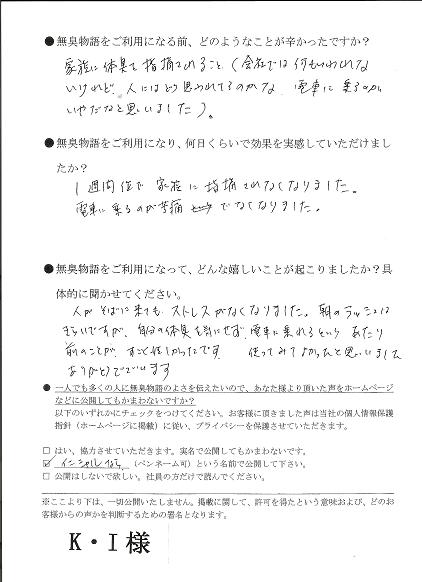 ●無臭物語をご利用になる前、どのようなことが辛かったですか？
家族に体臭を指摘されること（会社では何もいわれな
いけれど、人にはどう思われてるのかな、電車に乗るのが
いやだなと思いました）。
●無臭物語をご利用になり、何日くらいで効果を実感していただけまし
たか？
1週間位で家族に指摘されなくなりました。
電車に乗るのが苦痛でなくなりました。
●無臭物語をご利用になって、どんな嬉しいことが起こりましたか？具
体的に聞かせてください。
人がそばに来てもストレスがなくなりました。朝のラッシュは
きらいですが、自分の体臭を気にせず、電車に乗れるという あたり
前のことが、すごく嬉しかったです 使ってみてよかったと思いました
ありがとうございます
●一人でも多くの人に無臭物語のよさを伝えたいので、あなた様より頂いた声をホームページ
などに公開してもかまわないですか？
以下のいずれかにチェックをつけてください。お客様に頂きました声は当社の個人情報保護
指針（ホームページに掲載）に従い、プライバシーを保護させていただきます。
□ はい、協力させていただきます。実名で公開してもかまわないです。
☑ イニシャルなら（ペンネーム可）という名前で公開して下さい。
□ 公開はしないで欲しい。社員の方だけで読んでください。
※ここより下は、一切公開いたしません。掲載に関して、許可を得たという意味および、どのお
客様からの声かを判断するための署名となります。
K・I様